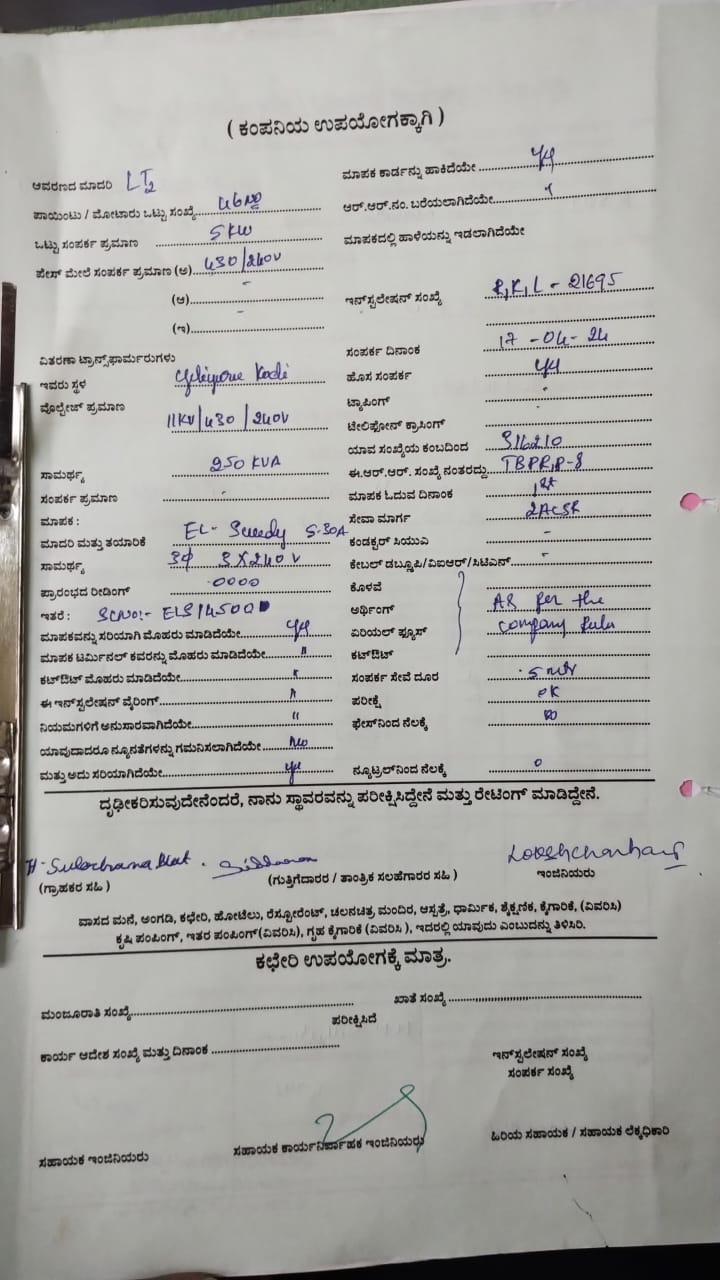 ( ಕಂಪನಿಯ ಉಪಯೋಗಕ್ಕಾಗಿ )
ಆವರಣದ ಮಾದರಿ LT2
ಮಾಪಕ ಕಾರ್ಡನ್ನು ಹಾಕಿದೆಯೇ
ಪಾಯಿಂಟು / ಮೋಟಾರು ಒಟ್ಟು ಸಂಖ್ಯೆ
ಆರ್.ಆರ್.ನಂ. ಬರೆಯಲಾಗಿದೆಯೇ
ಒಟ್ಟು ಸಂಪರ್ಕ ಪ್ರಮಾಣ 5KW
ಮಾಪಕದಲ್ಲಿ ಹಾಳೆಯನ್ನು ಇಡಲಾಗಿದೆಯೇ
ಪೇಸ್ ಮೇಲೆ ಸಂಪರ್ಕ ಪ್ರಮಾಣ (ಅ) 430/240V
(ಆ) -
ಇನ್‌ಸ್ಟಲೇಷನ್ ಸಂಖ್ಯೆ R,K,L - 21695
(ಇ) -
ವಿತರಣಾ ಟ್ರಾನ್ಸ್‌ಫಾರ್ಮರುಗಳು
ಸಂಪರ್ಕ ದಿನಾಂಕ 17-04-24
ಇವರು ಸ್ಥಳ Kodi
ಹೊಸ ಸಂಪರ್ಕ
ವೊಲ್ಟೇಜ್ ಪ್ರಮಾಣ 11KV/430/240V
ಟ್ಯಾಪಿಂಗ್ -
ಟೇಲಿಫೋನ್ ಕ್ರಾಸಿಂಗ್ -
ಯಾವ ಸಂಖ್ಯೆಯ ಕಂಬದಿಂದ
ಸಾಮರ್ಥ್ಯ 250 KVA
ಈ.ಆರ್.ಆರ್. ಸಂಖ್ಯೆ ನಂತರದ್ದು
ಸಂಪರ್ಕ ಪ್ರಮಾಣ -
ಮಾಪಕ ಓದುವ ದಿನಾಂಕ 1st
ಮಾಪಕ :
ಸೇವಾ ಮಾರ್ಗ 2ACSR
ಮಾದರಿ ಮತ್ತು ತಯಾರಿಕೆ 5-30A
ಕಂಡಕ್ಟರ್ ಸಿಯುಎ -
ಸಾಮರ್ಥ್ಯ 3Φ 3X240V
ಕೇಬಲ್ ಡಬ್ಲ್ಯೂಪಿ/ವಿಐಆರ್/ಸಿಟಿಎನ್ -
ಪ್ರಾರಂಭದ ರೀಡಿಂಗ್ 0000
ಕೊಳವೆ
ಇತರೆ :
ಅರ್ಥಿಂಗ್ As per the
ಮಾಪಕವನ್ನು ಸರಿಯಾಗಿ ಮೊಹರು ಮಾಡಿದೆಯೇ
ಏರಿಯಲ್ ಫ್ಯೂಸ್ company Rule
ಮಾಪಕ ಟರ್ಮಿನಲ್ ಕವರನ್ನು ಮೊಹರು ಮಾಡಿದೆಯೇ "
ಕಟ್‌ಔಟ್
ಕಟ್‌ಔಟ್ ಮೊಹರು ಮಾಡಿದೆಯೇ "
ಸಂಪರ್ಕ ಸೇವೆ ದೂರ 5 mtr
ಈ ಇನ್‌ಸ್ಟಲೇಷನ್ ವೈರಿಂಗ್ "
ಪರೀಕ್ಷೆ OK
ನಿಯಮಗಳಿಗೆ ಅನುಸಾರವಾಗಿದೆಯೇ "
ಫೇಸ್‌ನಿಂದ ನೆಲಕ್ಕೆ
ಯಾವುದಾದರೂ ನ್ಯೂನತೆಗಳನ್ನು ಗಮನಿಸಲಾಗಿದೆಯೇ No
ಮತ್ತು ಅದು ಸರಿಯಾಗಿದೆಯೇ
ನ್ಯೂಟ್ರಲ್‌ನಿಂದ ನೆಲಕ್ಕೆ 0
ದೃಢೀಕರಿಸುವುದೇನೆಂದರೆ, ನಾನು ಸ್ಥಾವರವನ್ನು ಪರೀಕ್ಷಿಸಿದ್ದೇನೆ ಮತ್ತು ರೇಟಿಂಗ್ ಮಾಡಿದ್ದೇನೆ.
H. Sulochana Bhat
(ಗ್ರಾಹಕರ ಸಹಿ )
(ಗುತ್ತಿಗೆದಾರರ / ತಾಂತ್ರಿಕ ಸಲಹೆಗಾರರ ಸಹಿ )
ಇಂಜಿನಿಯರು
ವಾಸದ ಮನೆ, ಅಂಗಡಿ, ಕಛೇರಿ, ಹೋಟೆಲು, ರೆಸ್ಟೋರೆಂಟ್, ಚಲನಚಿತ್ರ ಮಂದಿರ, ಆಸ್ಪತ್ರೆ, ಧಾರ್ಮಿಕ, ಶೈಕ್ಷಣಿಕ, ಕೈಗಾರಿಕೆ, (ವಿವರಿಸಿ)
ಕೃಷಿ ಪಂಪಿಂಗ್, ಇತರ ಪಂಪಿಂಗ್(ವಿವರಿಸಿ), ಗೃಹ ಕೈಗಾರಿಕೆ (ವಿವರಿಸಿ ), ಇದರಲ್ಲಿ ಯಾವುದು ಎಂಬುದನ್ನು ತಿಳಿಸಿರಿ.
ಕಛೇರಿ ಉಪಯೋಗಕ್ಕೆ ಮಾತ್ರ.
ಮಂಜೂರಾತಿ ಸಂಖ್ಯೆ
ಖಾತೆ ಸಂಖ್ಯೆ
ಪರೀಕ್ಷಿಸಿದೆ
ಕಾರ್ಯ ಆದೇಶ ಸಂಖ್ಯೆ ಮತ್ತು ದಿನಾಂಕ
ಇನ್‌ಸ್ಟಲೇಷನ್ ಸಂಖ್ಯೆ
ಸಂಪರ್ಕ ಸಂಖ್ಯೆ
ಸಹಾಯಕ ಇಂಜಿನಿಯರು
ಸಹಾಯಕ ಕಾರ್ಯನಿರ್ವಾಹಕ ಇಂಜಿನಿಯರು
ಹಿರಿಯ ಸಹಾಯಕ / ಸಹಾಯಕ ಲೆಕ್ಕಧಿಕಾರಿ